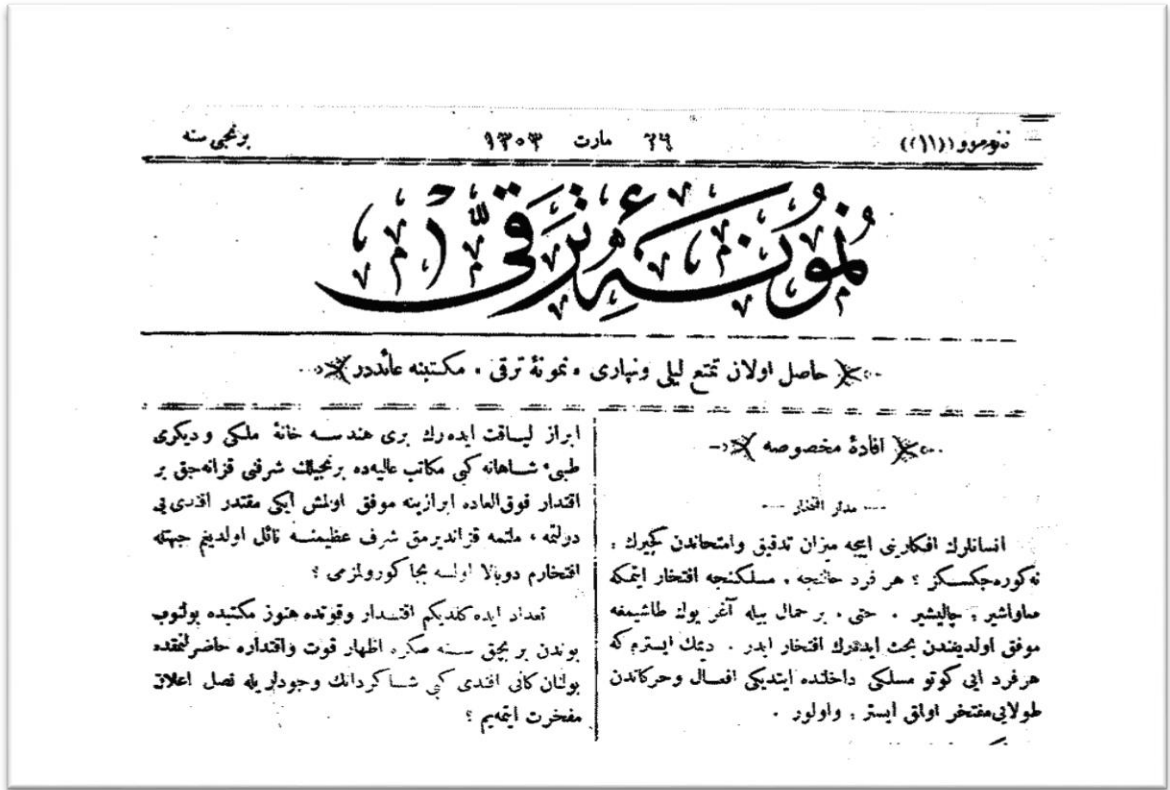 نومرو (١١) ٢٦ مارت ١٣٠٣ برنجی سنه
نُمُونَهٔ تَرَقِّی
حاصل اولان تمتع لیلی ونهاری ، نمونهٔ ترقی ، مکتبنه عائددر
افادهٔ مخصوصه
مدار افتخار
انسانلرك افکارینی اییجه میزان تدقیق وامتحاندن کچیرك ،
نه کوره‌جکسکز ؟ هر فرد حالنجه ، مسلکنجه افتخار ایتمکه
صاواشیر ، چالیشیر . حتی ، بر حمال بیله آغر یوك طاشیمغه
موفق اولدیغندن بحث ایده‌رك افتخار ایدر . دیمك ایسترم که
هر فرد ایی کوتو مسلکی داخلنده ایتدیکی افعال وحرکاتدن
طولایی مفتخر اولمق ایستر ، واولور .
ابراز لیاقت ایده‌رك بری هندسه خانهٔ ملکی و دیکری
طبیهٔ شاهانه کبی مکاتب عالیه‌ده برنجیلك شرفنی قزانه‌جق بر
اقتدار فوق‌العاده ابرازینه موفق اولمش ایکی مقتدر افندی‌یی
دولتمه ، ملتمه قزاندیرمق شرف عظیمنه نائل اولدیغم جهتله
افتخارم دوبالا اولسه بجا کورولمزمی ؟
تعداد ایده‌کلدیکم اقتدار وقوتده هنوز مکتبده بولنوب
بوندن بر بچق سنه صکره اظهار قوت واقتداره حاضرلنمقده
بولنان کانی افندی کبی شاکردانك وجودلریله نصل اعلاق
مفخرت ایتمه‌یم ؟